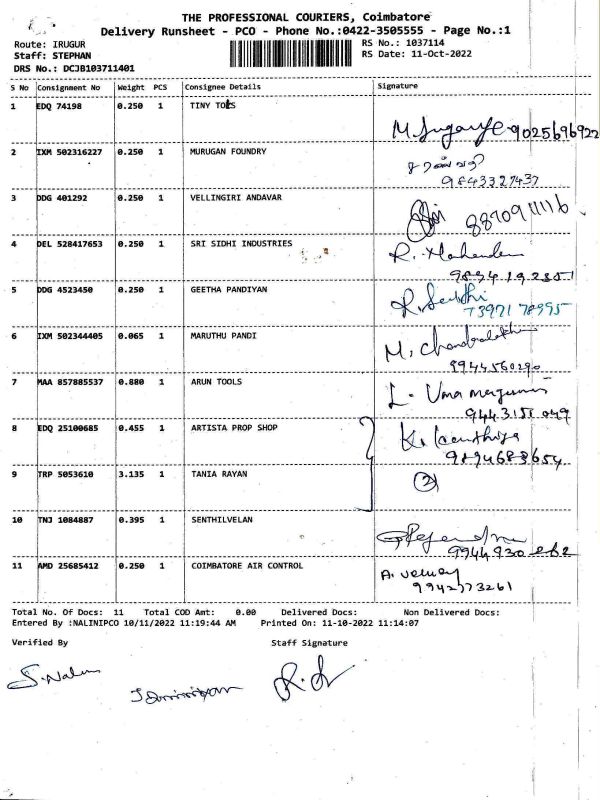 THE PROFESSIONAL COURIERS, Coimbatore
Delivery Runsheet - PCO - Phone No.:0422-3505555 - Page No.:1
Route: IRUGUR
Staff: STEPHAN
DRS No.: DCJB103711401
RS No.: 1037114
RS Date: 11-Oct-2022
S No Consignment No Weight PCS Consignee Details Signature
1 EDQ 74198 0.250 1 TINY TOES
9025696922
2 IXM 502316227 0.250 1 MURUGAN FOUNDRY
9843327437
3 DDG 401292 0.250 1 VELLINGIRI ANDAVAR
4 DEL 528417653 0.250 1 SRI SIDHI INDUSTRIES
9894192351
5 DDG 4523450 0.250 1 GEETHA PANDIYAN
6 IXM 502344405 0.065 1 MARUTHU PANDI
9944560290
7 MAA 857885537 0.880 1 ARUN TOOLS
9443155049
8 EDQ 25100685 0.455 1 ARTISTA PROP SHOP
9894683654
9 TRP 5053610 3.135 1 TANIA RAYAN
2
10 TNJ 1084887 0.395 1 SENTHILVELAN
11 AMD 25685412 0.250 1 COIMBATORE AIR CONTROL
9942773261
Total No. Of Docs: 11 Total COD Amt: 0.00 Delivered Docs: Non Delivered Docs:
Entered By :NALINIPCO 10/11/2022 11:19:44 AM Printed On: 11-10-2022 11:14:07
Verified By Staff Signature